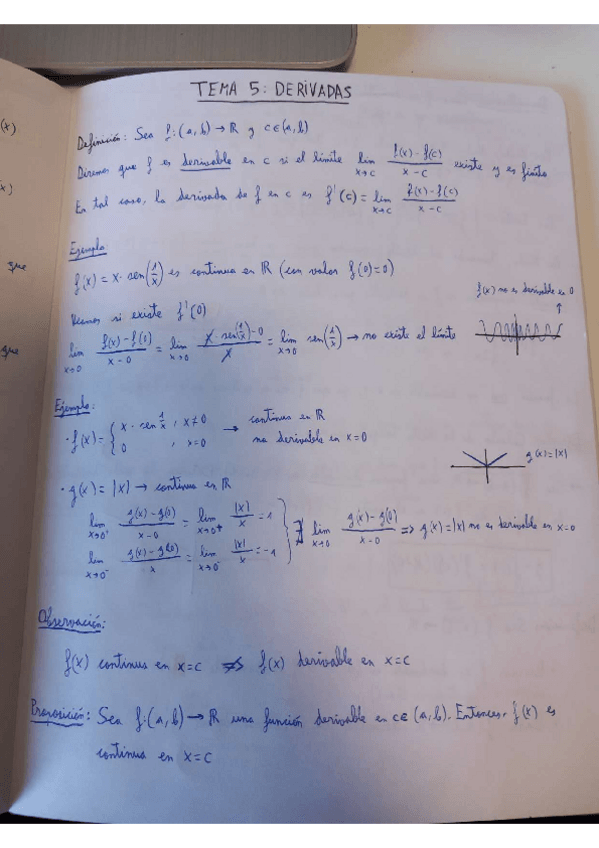 (x)
x)
que
que
TEMA 5: DERIVADAS
Definición: Sea f: (a, b) → ℝ y c∈(a, b)
Diremos que f es derivable en c si el límite lim x→c (f(x) - f(c))/(x - c) existe y es finito
En tal caso, la derivada de f en c es f'(c) = lim x→c (f(x) - f(c))/(x - c)
Ejemplo:
f(x) = x · sen(1/x) es continua en ℝ (con valor f(0) = 0)
f(x) no es derivable en 0
↑
Veamos si existe f'(0)
lim x→0 (f(x) - f(0))/(x - 0) = lim x→0 (x · sen(1/x) - 0)/x = lim x→0 sen(1/x) → no existe el límite
Ejemplo:
· f(x) = { x · sen 1/x , x≠0 → continua en ℝ
0 , x=0 no derivable en x=0
g(x) = |x|
· g(x) = |x| → continua en ℝ
lim x→0⁺ (g(x) - g(0))/(x - 0) = lim x→0⁺ |x|/x = 1
lim x→0⁻ (g(x) - g(0))/x = lim x→0⁻ |x|/x = -1
} ∄ lim x→0 (g(x) - g(0))/(x - 0) ⇒ g(x) = |x| no es derivable en x=0
Observación:
f(x) continua en x=c ⇏ f(x) derivable en x=c
Proposición: Sea f: (a, b) → ℝ una función derivable en c∈ (a, b). Entonces, f(x) es
continua en x=c